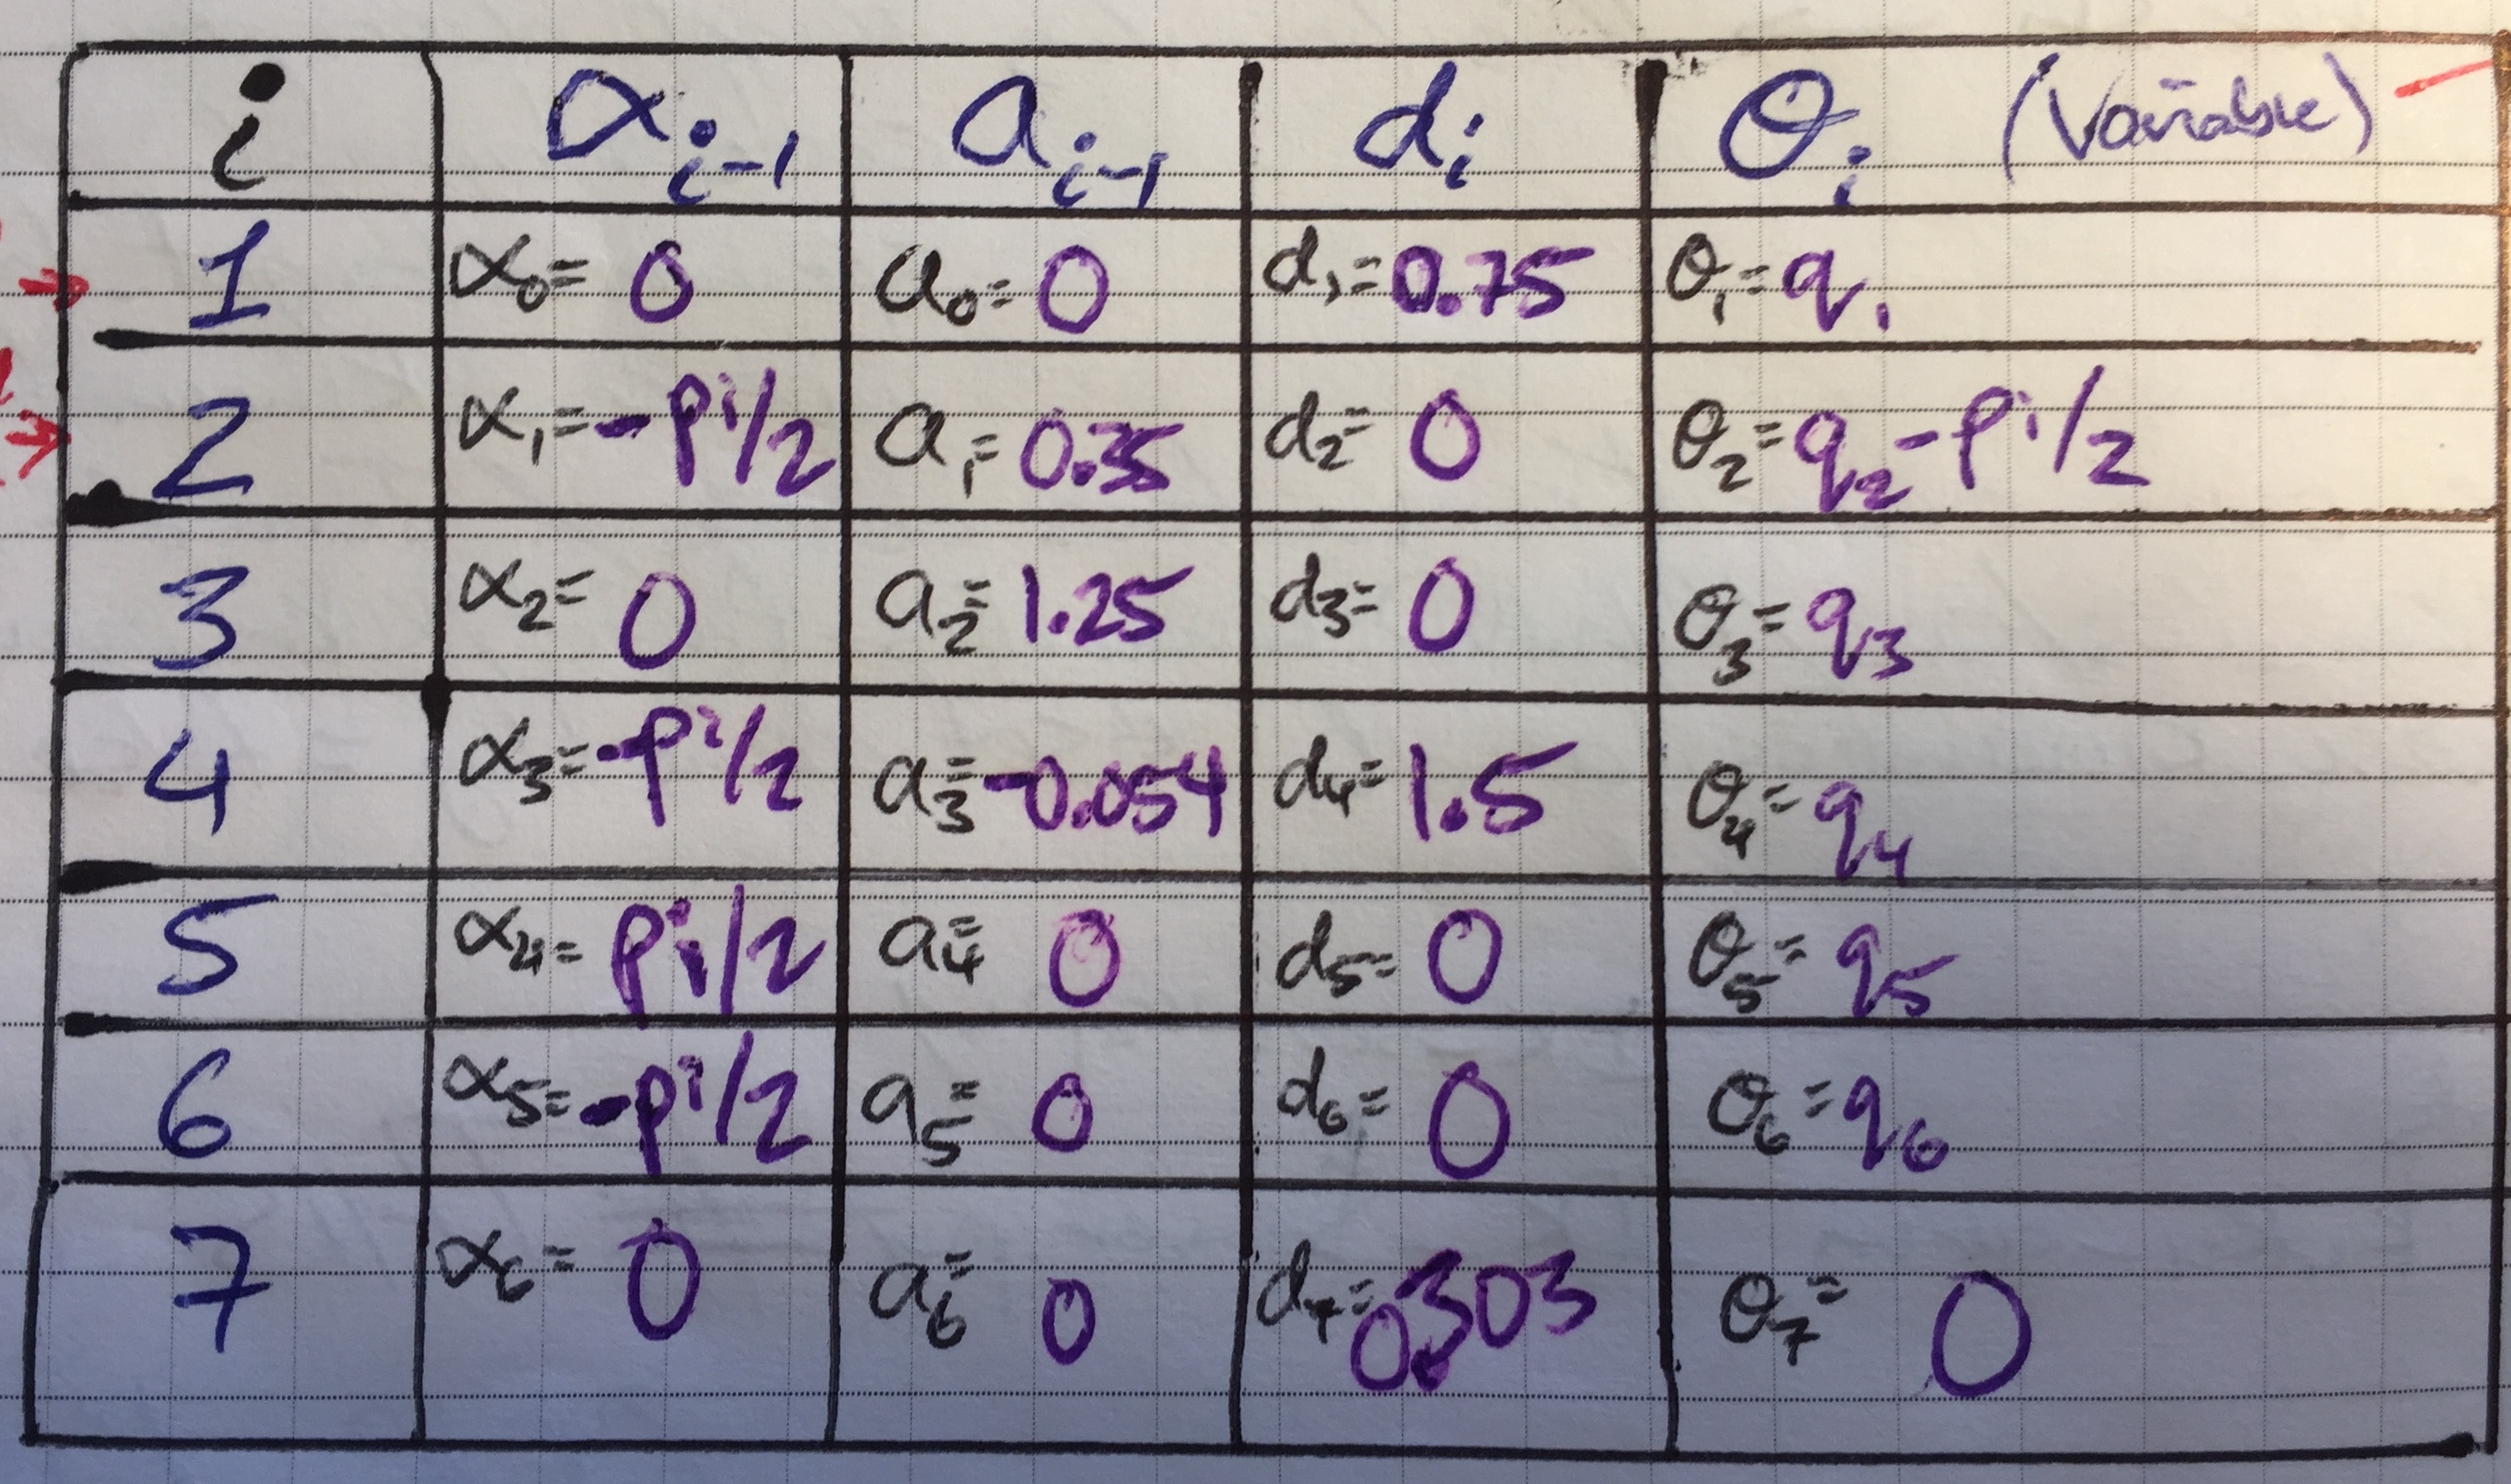 i αi-1 ai-1 di θi (Variable)
1 α0= 0 a0= 0 d1= 0.75 θ1= q1
2 α1= -pi/2 a1= 0.35 d2= 0 θ2= q2-pi/2
3 α2= 0 a2= 1.25 d3= 0 θ3= q3
4 α3= -pi/2 a3= -0.054 d4= 1.5 θ4= q4
5 α4= pi/2 a4= 0 d5= 0 θ5= q5
6 α5= -pi/2 a5= 0 d6= 0 θ6= q6
7 α6= 0 a6= 0 d7= 0.303 θ7= 0